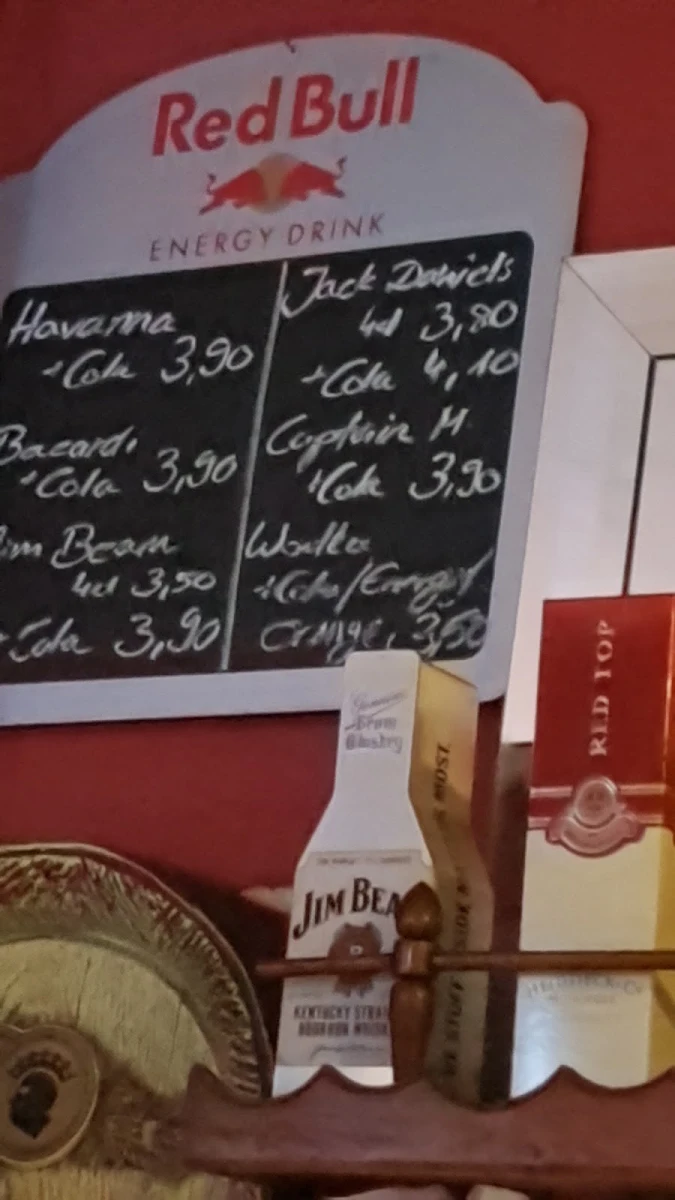 Red Bull
ENERGY DRINK
Havanna
+Cola 3,90
Bacardi
+Cola 3,90
Jim Beam
4cl 3,50
+Cola 3,90
Jack Daniels
4cl 3,80
+Cola 4,10
Captain M.
+Cola 3,90
Wodka
+Cola/Energy/
Orange, 3,50
Genuine
Sour
JIM BEA
KENTUCKY STRAI
BOURBON WHISK
MOST
STUFF
RED TOP